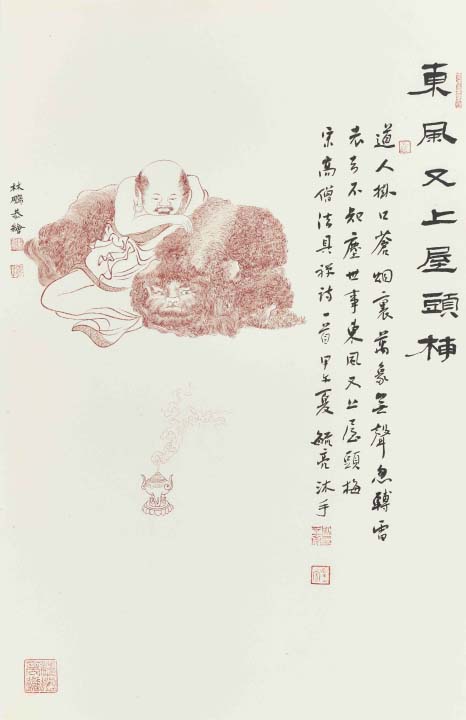 東風又上屋頭梅
道人掛口蒼烟裏萬象無聲忽轉雷
老去不知塵世事東風又上屋頭梅
宋高僧法具禪詩一首甲午夏毓亮沐手
林鵬恭繪